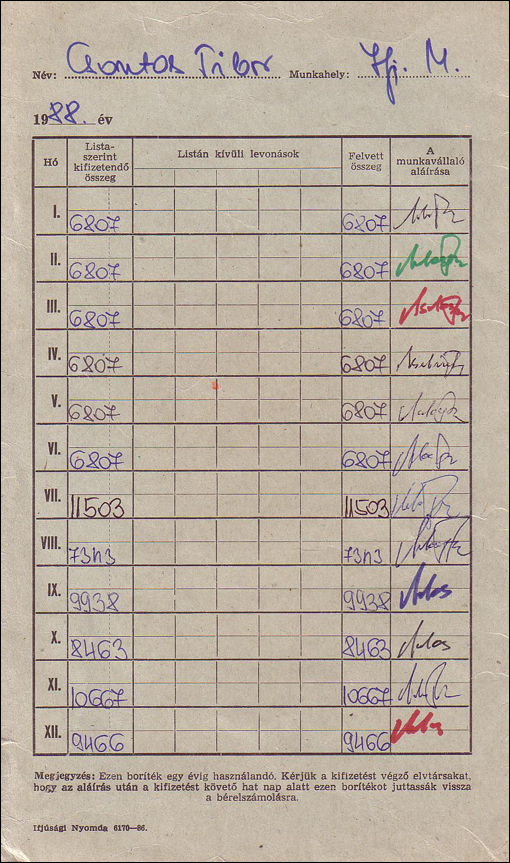 Név: Csontos Tibor Munkahely: Ifj. M.
1988. év
Hó Lista-szerint kifizetendő összeg Listán kívüli levonások Felvett összeg A munkavállaló aláírása
I. 6807 6807
II. 6807 6807
III. 6807 6807
IV. 6807 6807
V. 6807 6807
VI. 6807 6807
VII. 11503 11503
VIII. 7343 7343
IX. 9938 9938
X. 8463 8463
XI. 10667 10667
XII. 9466 9466
Megjegyzés: Ezen boríték egy évig használandó. Kérjük a kifizetést végző elvtársakat,
hogy az aláírás után a kifizetést követő hat nap alatt ezen borítékot juttassák vissza
a bérelszámolásra.
Ifjúsági Nyomda 6170—86.